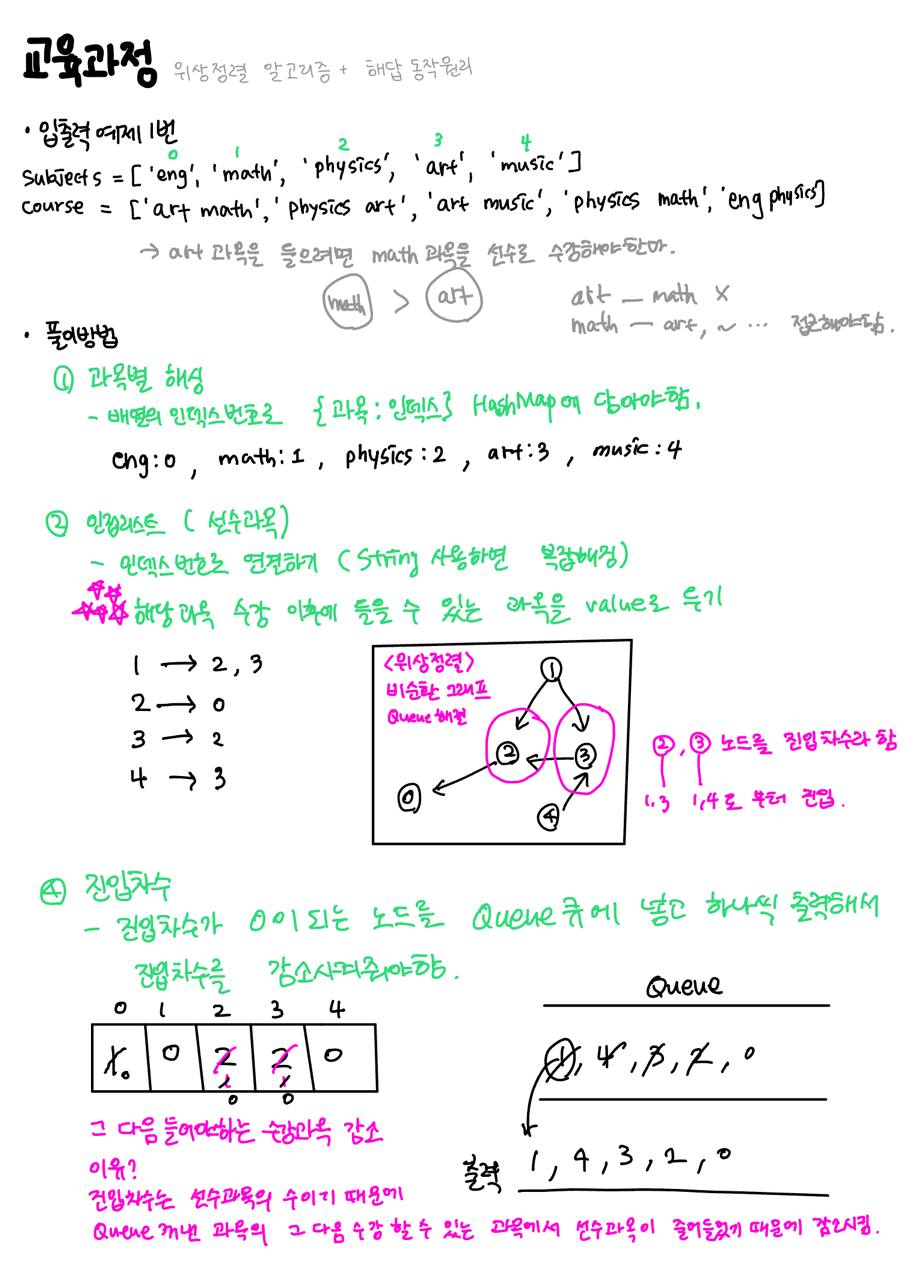 교육과정 위상정렬 알고리즘 + 해답 동작원리
· 입출력 예제 1번
0 1 2 3 4
subjects = ['eng', 'math', 'physics', 'art', 'music']
course = ['art math', 'physics art', 'art music', 'physics math', 'eng physics']
→ art 과목을 들으려면 math 과목을 선수로 수강해야한다.
math > art
art — math X
math — art, ~ ··· 접근해야됨.
· 풀이방법
① 과목별 해싱
- 배열의 인덱스번호로 {과목:인덱스} HashMap에 담아야함.
eng:0, math:1, physics:2, art:3, music:4
② 인접리스트 (선수과목)
- 인덱스번호로 연결하기 (String 사용하면 복잡해짐)
☆☆☆☆☆ 해당과목 수강 이후에 들을 수 있는 과목을 value로 두기
1 → 2, 3
2 → 0
3 → 2
4 → 3
<위상정렬>
비순환 그래프
Queue 해결
①
② ③
⓪
④
②, ③ 노드를 진입차수라 함
1,3 1,4로 부터 진입.
④ 진입차수
- 진입차수가 0이 되는 노드를 Queue 큐에 넣고 하나씩 출력해서
진입차수를 감소시켜줘야함.
0 1 2 3 4
1 0 2 2 0
0 1 1
0 0
Queue
1, 4, 3, 2, 0
출력 1, 4, 3, 2, 0
그 다음 들어야하는 수강과목 감소
이유?
진입차수는 선수과목의 수이기 때문에
Queue 꺼낸 과목의 그 다음 수강 할 수 있는 과목에서 선수과목이 줄어들었기 때문에 감소시킴.